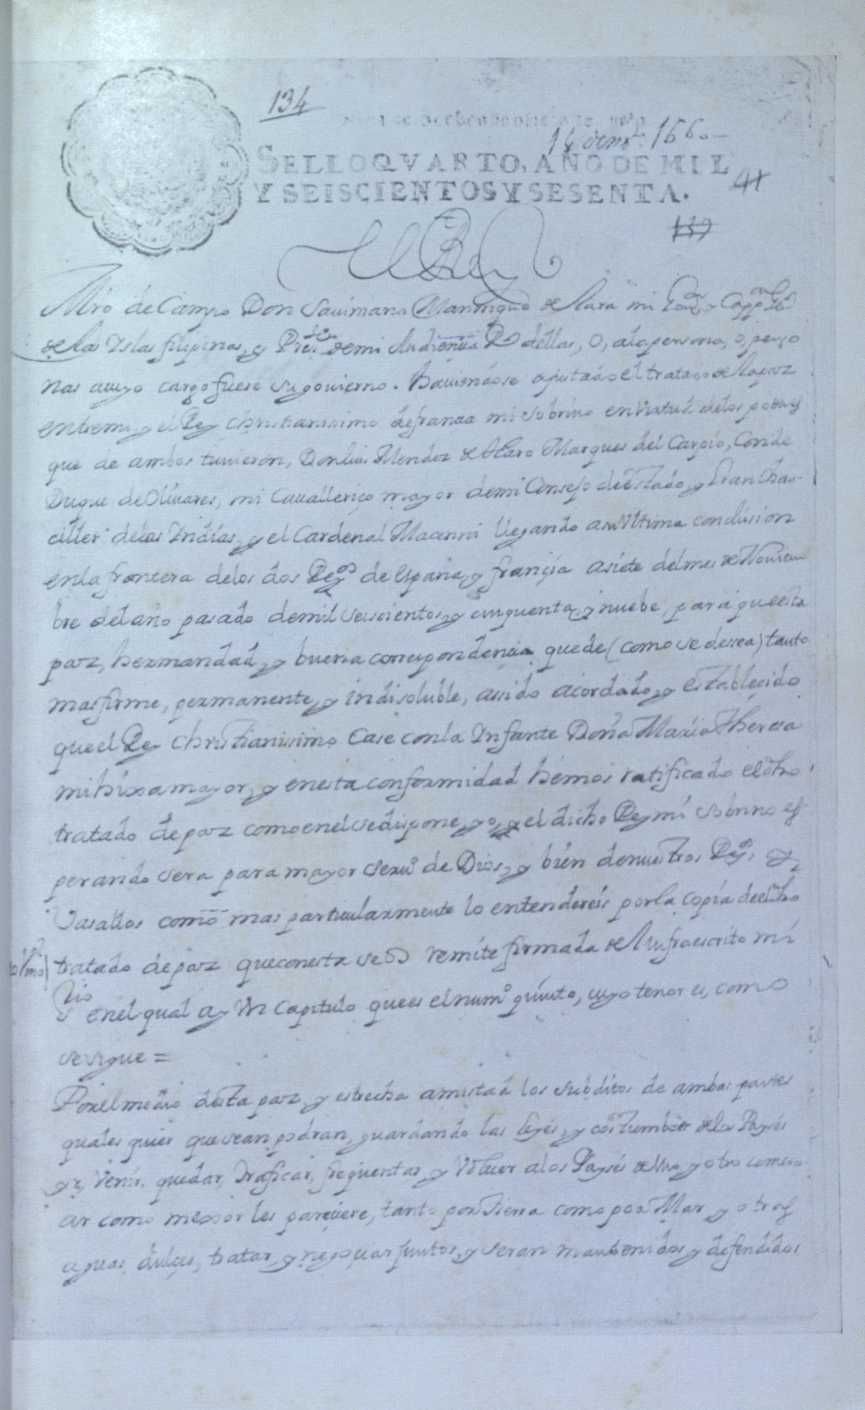 134
14 1660
SELLO QVARTO, AÑO DE MIL
Y SEISCIENTOS Y SESENTA.
41
139
El Rey
Mro de Campo Don Savimana Manrique de Lara mi Gou.or y Capp.an Gl
de las Yslas filipinas, y Pres.te de mi Audiencia Rl dellas, o, ala persona, o, perso
nas a cuyo cargo fuese su govierno. haviendose ajustado el tratado de la paz
entre mi y el Rey christianissimo de francia mi sobrino en virtud de los poderes
que de ambos tuvieron, Don Luis Mendez de Haro Marques del Carpio, Conde
Duque de Olivares, mi Cavallerizo mayor de mi Consejo de estado, y Gran Chan-
ciller de las Yndias, y el Cardenal Macarini llegando a su Vltima conclusion
en la frontera de los dos Rey.os de españa, y françia a siete del mes de Noviem
bre del año pasado de mil seiscientos, y cinquenta, y nuebe, para que esta
paz, hermandad, y buena correspondencia quede (como se desea) tanto
mas firme, permanente, y indisoluble, assido acordado, y establecido
que el Rey christianisimo Case con la Infante Doña Maria Theresa
mi hixa mayor, y en esta conformidad hemos ratificado el dho
tratado de paz como en el se dispone, yo, y el dicho Rey mi sobrino es
perando sera para mayor seru.o de Dios, y bien de nuestros Rey.os, y
Vasallos como mas particularmente lo entendereis por la copia de el dho
tratado de paz que con esta se os remite firmada de Ynfraescrito mi
srio en el qual ay Vn Capitulo que es el num.o quinto, cuyo tenor es, como
se sigue =
Por el medio desta paz, y estrecha amistad los subditos de ambas partes
quales quier que sean podran, guardando las leyes, y costumbres de los Payses
yr, venir, quedar, traficar, frequentar, y Volver a los Payses de Vno, y otro comerci
ar como mexor les pareciere, tanto por tierra como por Mar, y otras
aguas dulces, tratar, y negociar juntos, y seran mantenidos, y defendidos